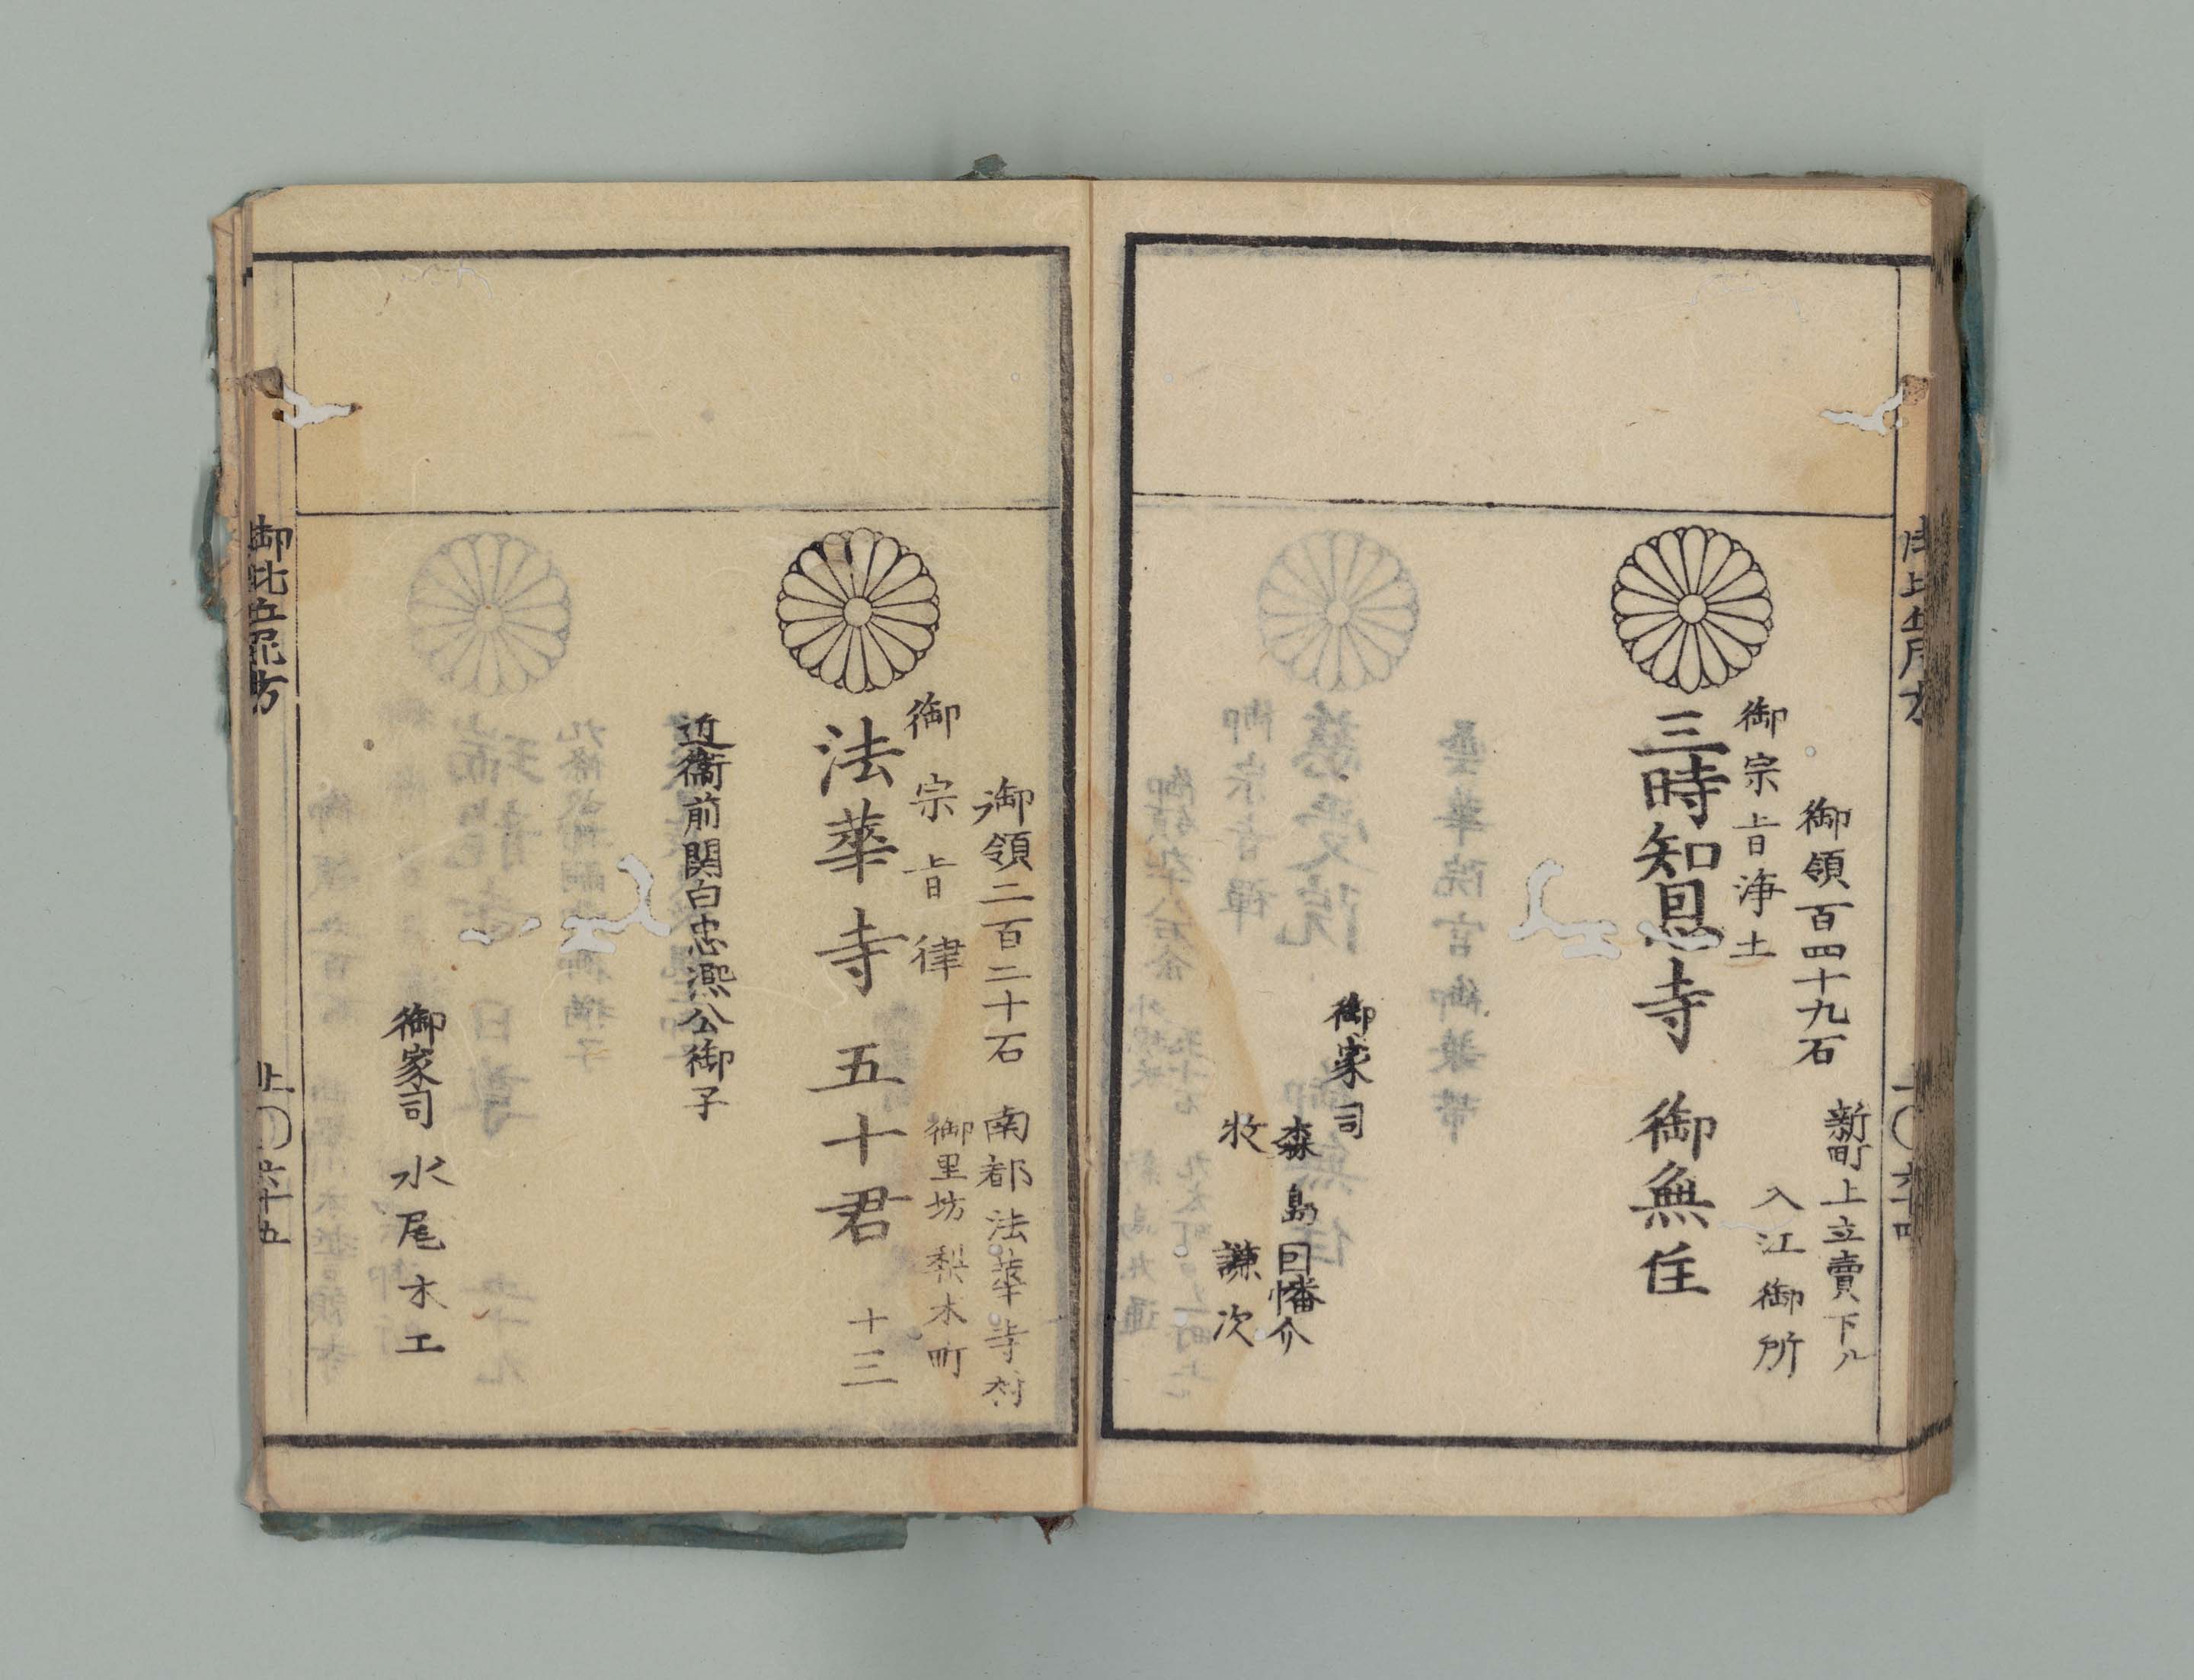 御領百四十九石
新町上立賣下ル
入江御所
御宗旨浄土
三時知恩寺 御無住
御家司
森島因幡介
牧 謙次
御領二百二十石 南都法華寺村
御里坊 梨木町
御宗旨律
法華寺 五十君 十三
近衞前関白忠熈公御子
御家司 水尾木工
御比丘尼方
上 六十五